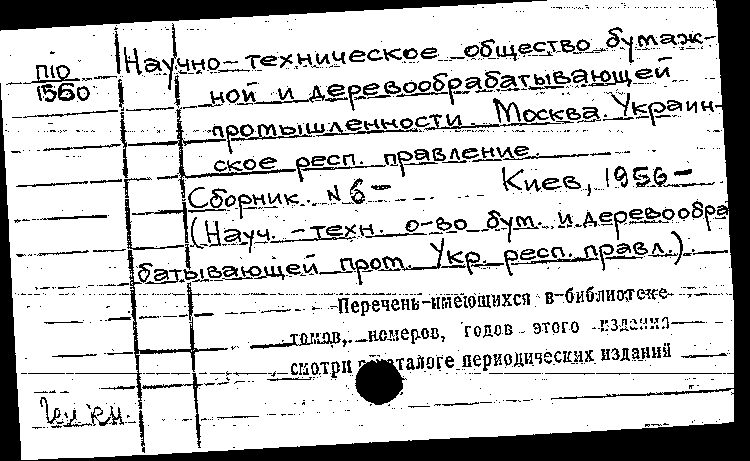 П10
1560
Научно-техническое общество бумаж-
ной и деревообрабатывающей
промышленности. Москва. Украин-
ское респ. правление.
Сборник. N 6- Киев, 1956-
(Науч.-техн. о-во бум. и деревообра
батывающей пром. Укр. респ. правл.).
Перечень имеющихся в библиотеке
томов, номеров, годов этого издания
смотри в каталоге периодических изданий